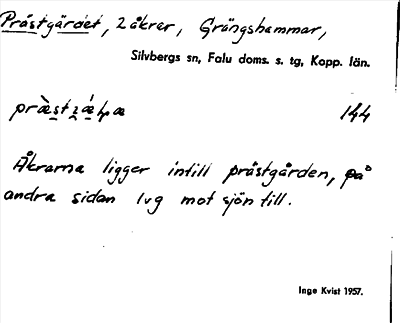 Prästgärdet, 2 åkrar, Grängshammar,
Silvbergs sn, Falu doms. s. tg, Kopp. län.
144
Åkrarna ligger intill prästgården, på
andra sidan lvg mot sjön till.
Inge Kvist 1957.